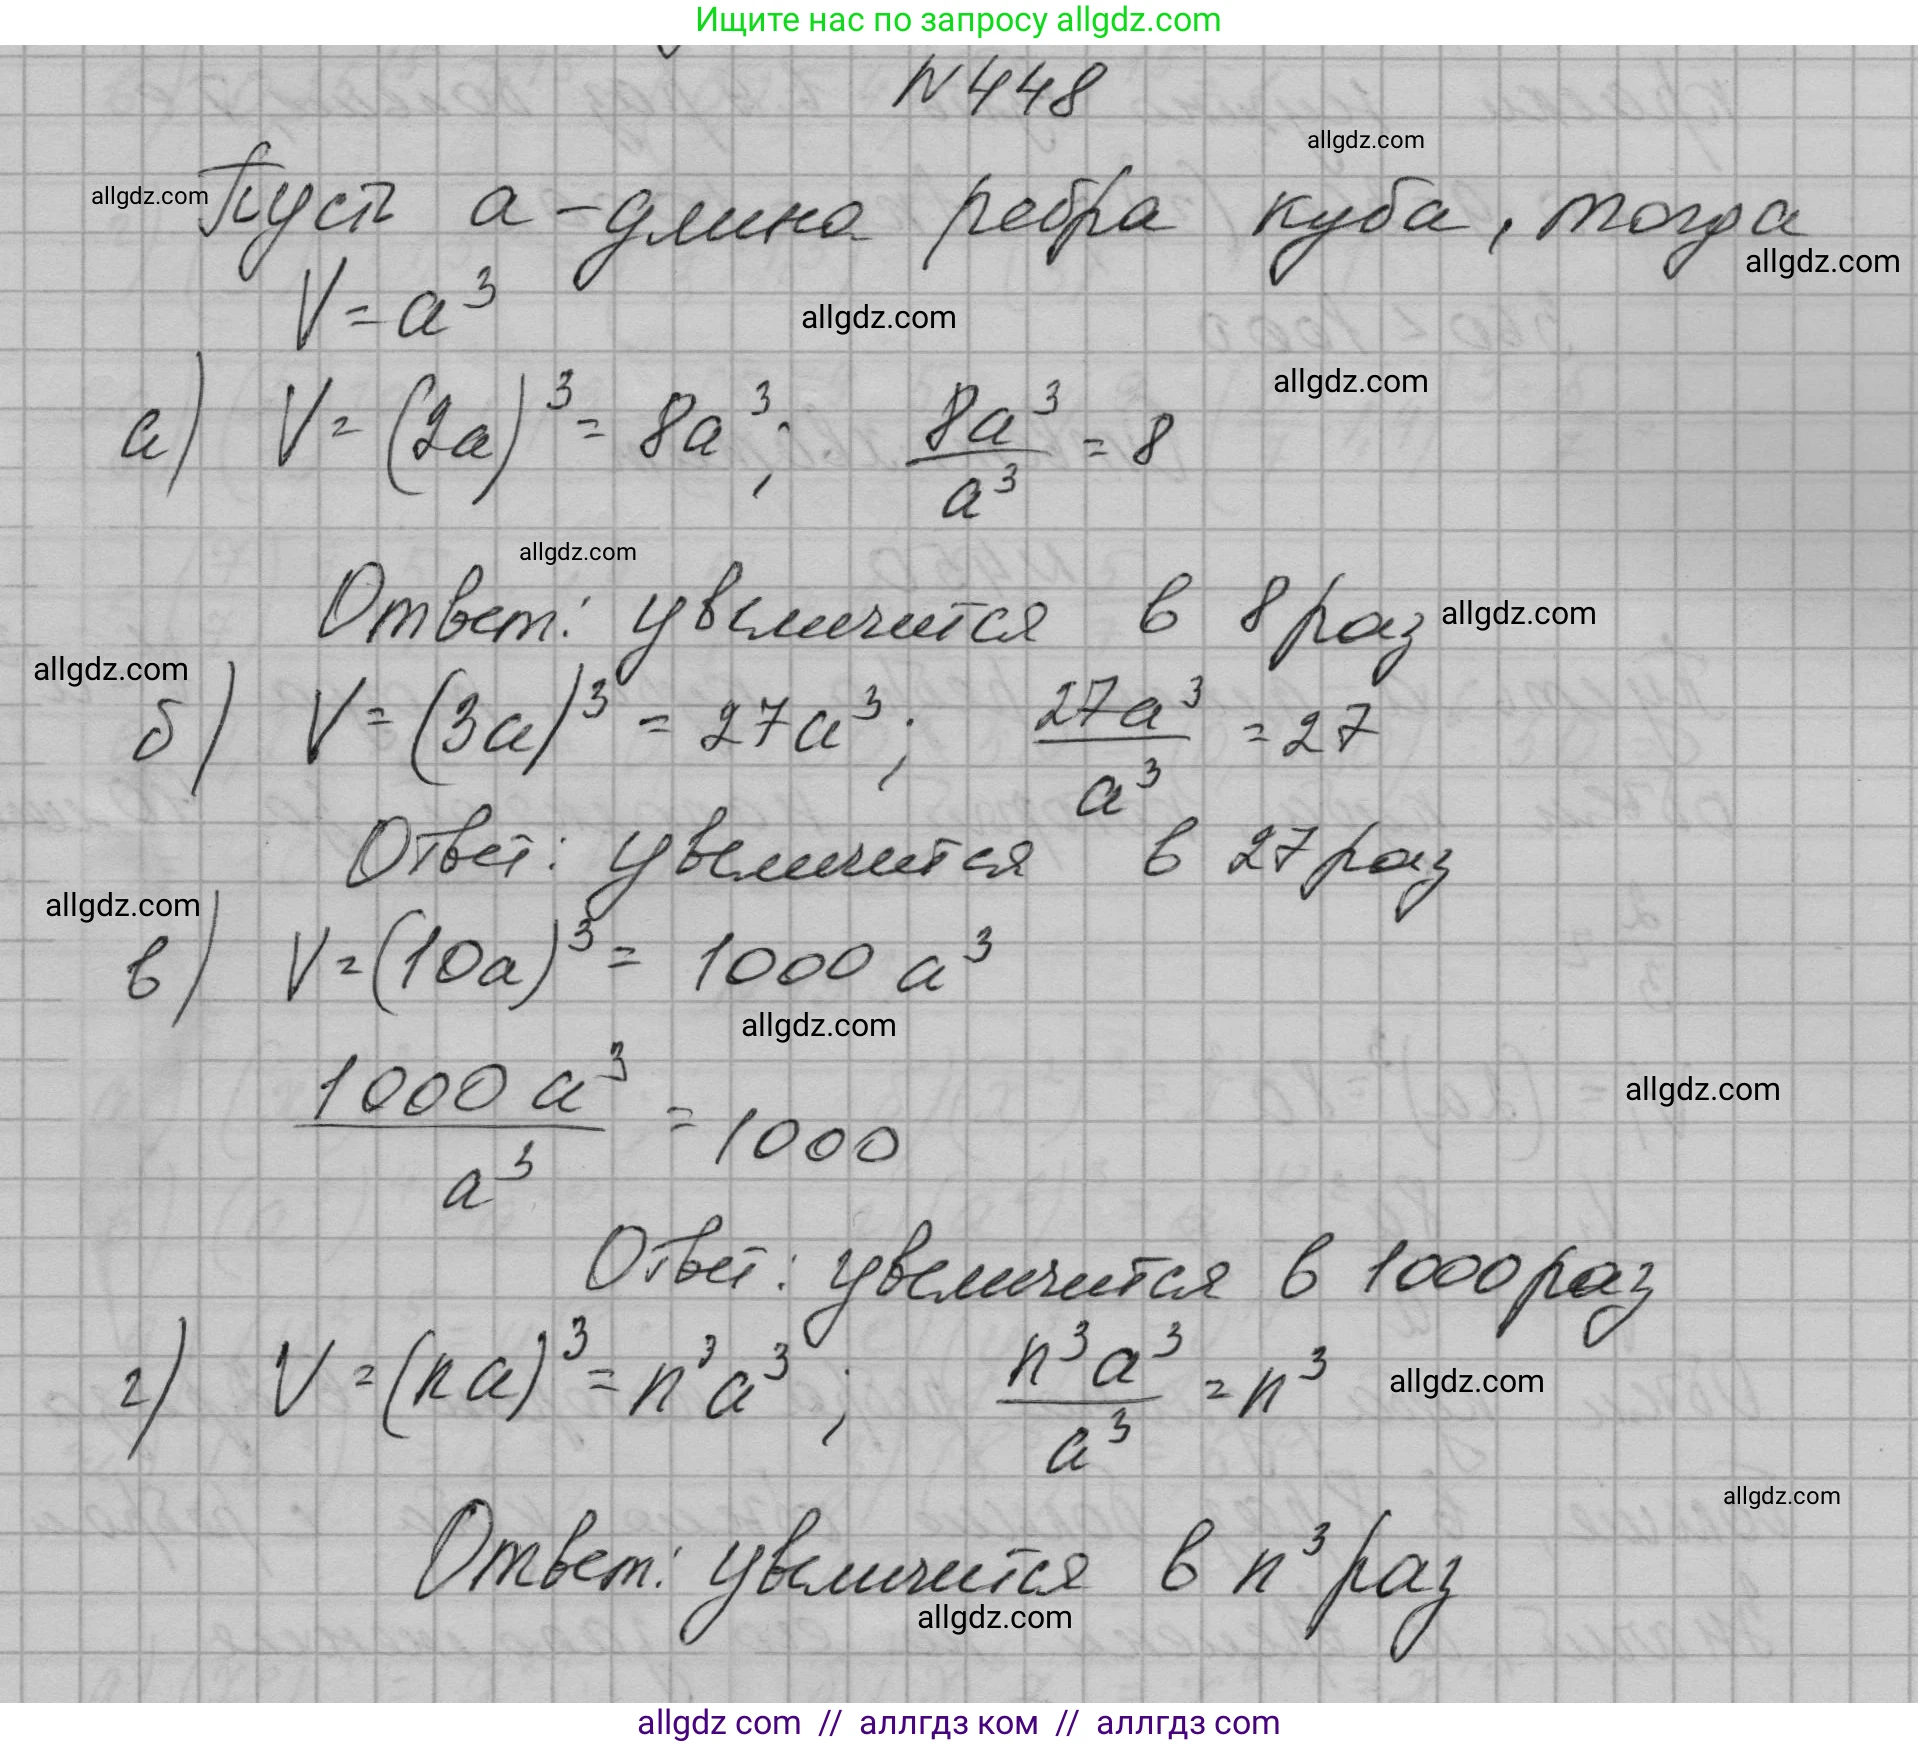 Ищите нас по запросу allgdz.com
N448
allgdz.com
allgdz.com Пусть a – длина ребра куба, тогда
allgdz.com
V = a³
allgdz.com
allgdz.com
а) V = (2a)³ = 8a³; 8a³/a³ = 8
allgdz.com
Ответ: увеличится в 8 раз allgdz.com
allgdz.com
б) V = (3a)³ = 27a³; 27a³/a³ = 27
Ответ: увеличится в 27 раз
allgdz.com
в) V = (10a)³ = 1000 a³
allgdz.com
1000 a³/a³ = 1000
allgdz.com
Ответ: увеличится в 1000 раз
г) V = (na)³ = n³a³; n³a³/a³ = n³ allgdz.com
allgdz.com
Ответ: увеличится в n³ раз
allgdz.com
allgdz com // аллгдз ком // аллгдз com